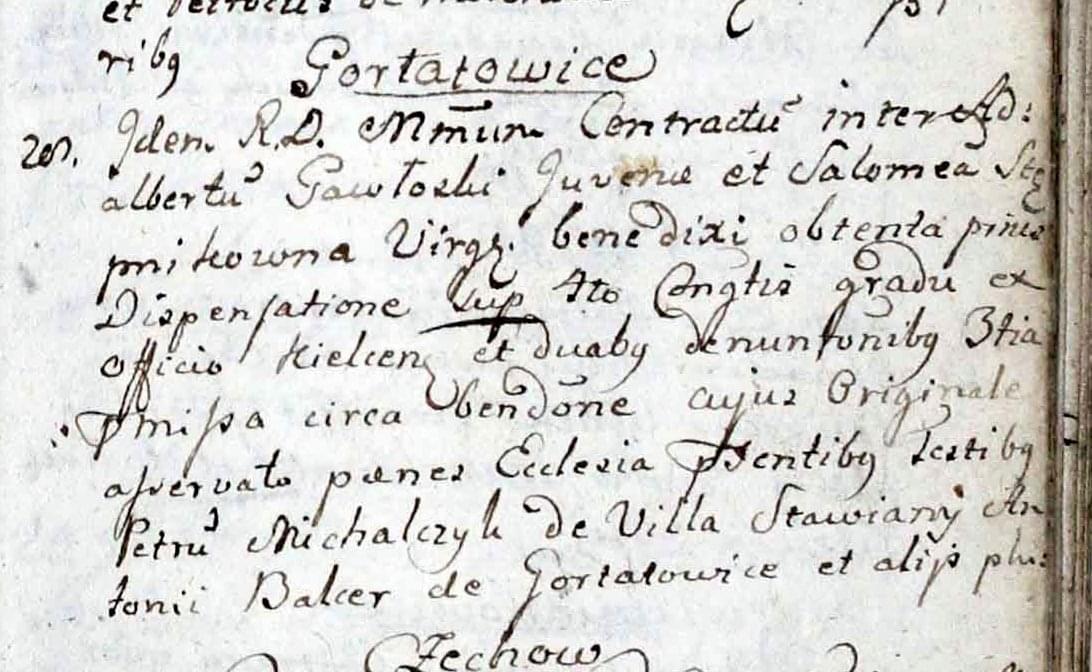 et
ribq
Gortatowice
20. Idem R.D. Mm̄um Contractū inter Ad:
albertū Gawłoski Juvene et Salomea Stę
pnikowna Virgę. benedixi obtenta prius
Dispensatione sup 4to Congtis gradu ex
Officio Kielcen et duabq denuntōnibq 3tia
pmissa circa bendōne cujus Originale
asservato pænes Ecclesia pſentibq Testibq
Petrū Michalczyk de Villa Stawiany An
tonii Balcer de Gortatowice et alijs plu:
Zechow